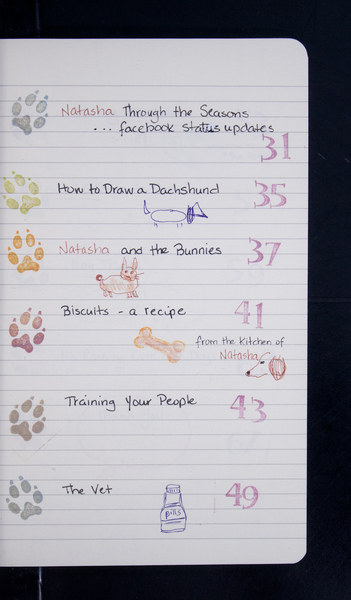 Natasha Through the Seasons
... facebook status updates
31
How to Draw a Dachshund 35
Natasha and the Bunnies 37
Biscuits - a recipe 41
from the Kitchen of
Natasha
Training Your People 43
The Vet 49
Pills